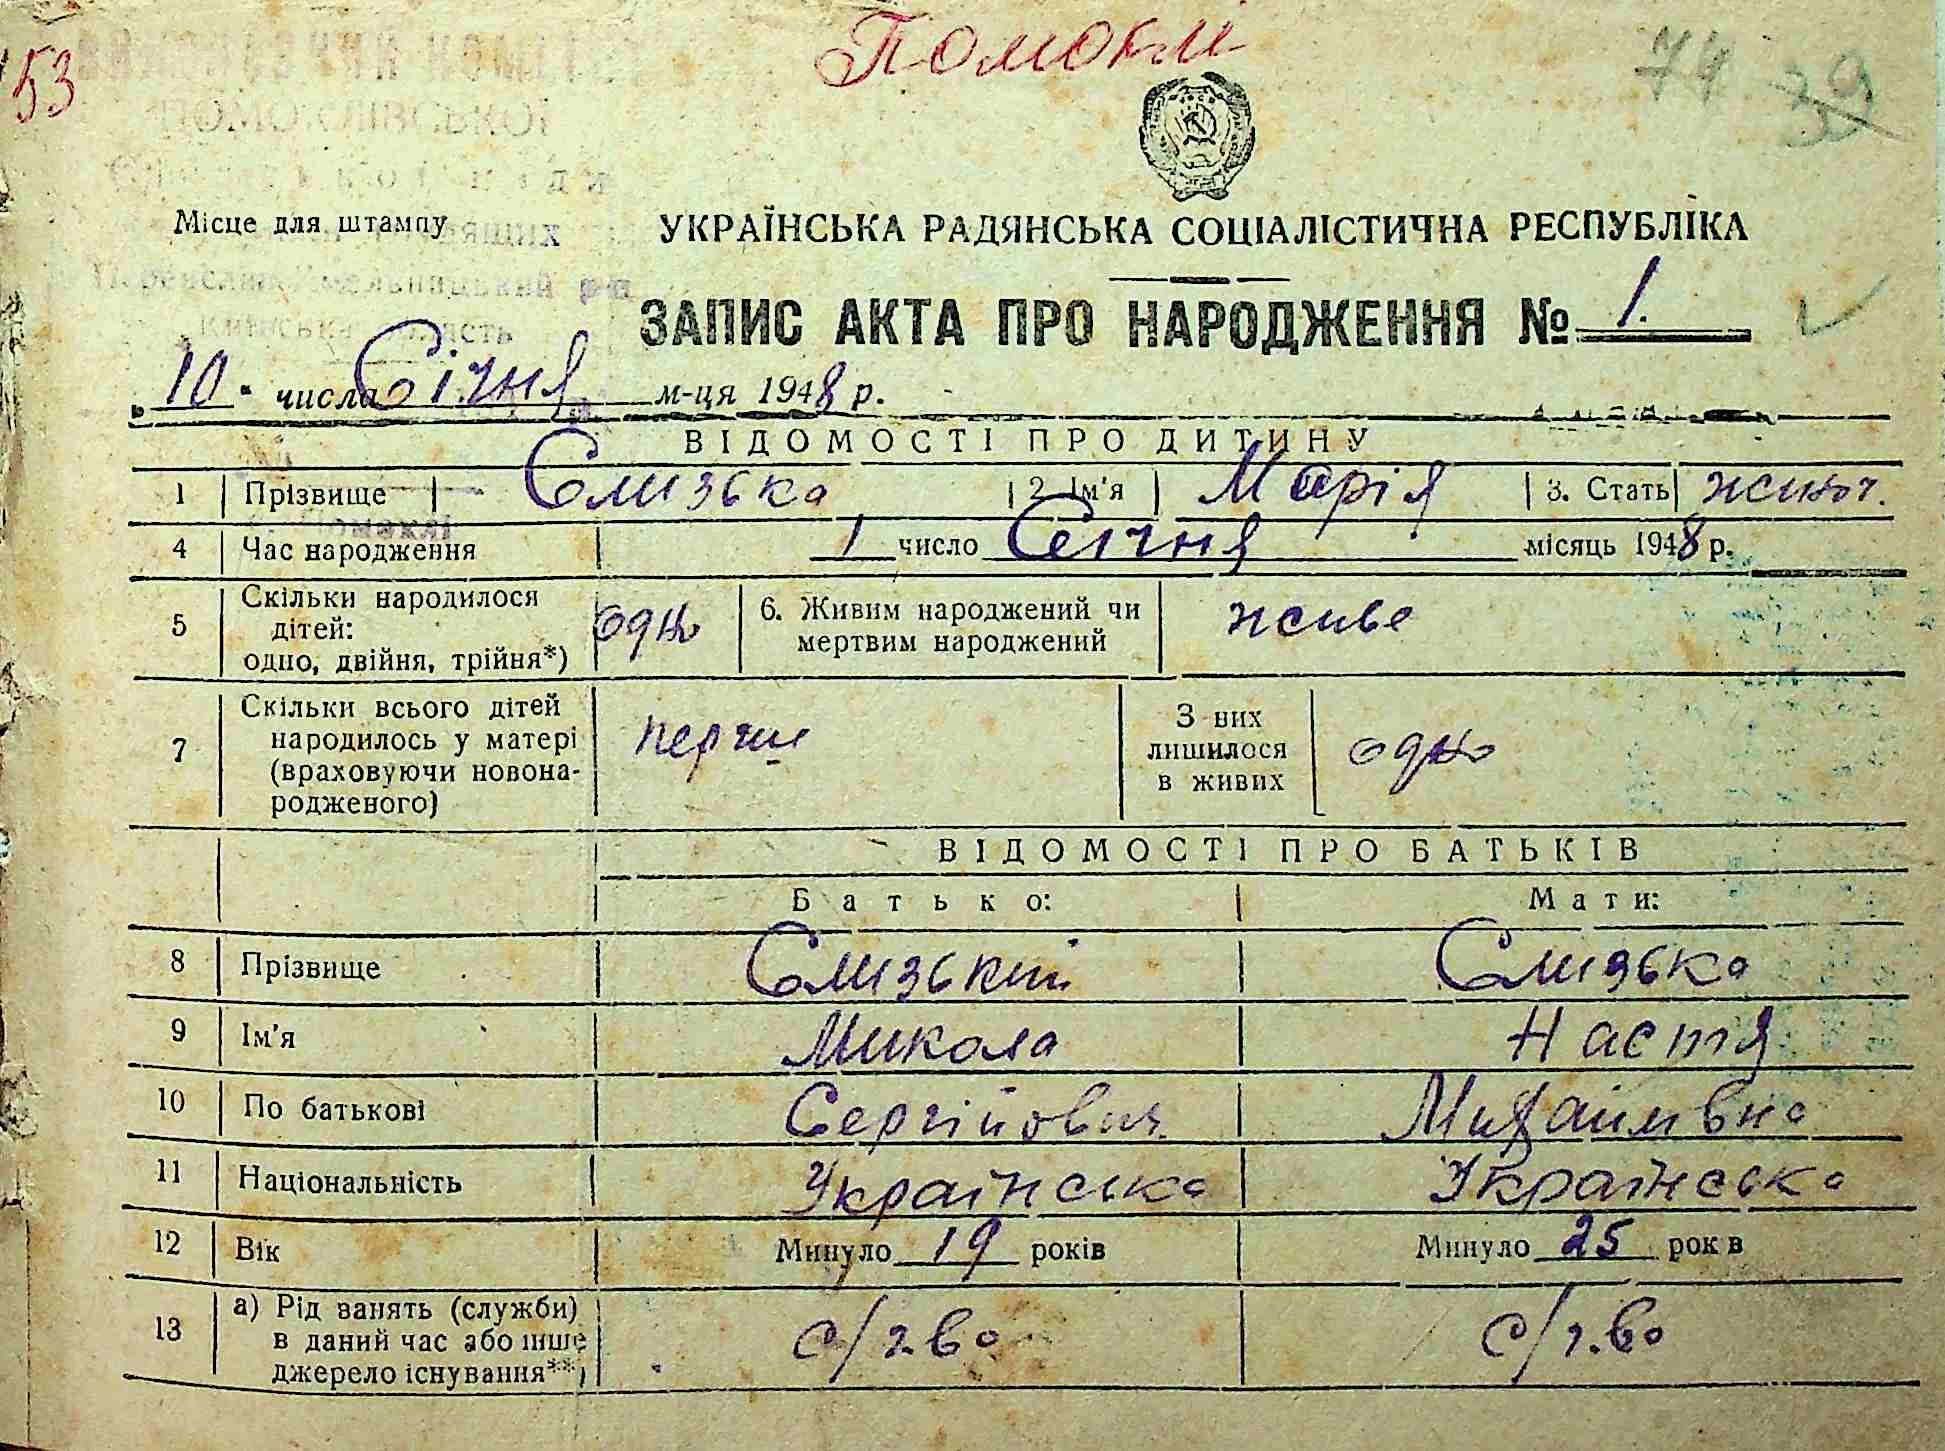 Помоклі
53
74 39
ПОМОКЛІВСЬКОЇ
Місце для штампу
Переяслав-Хмельницький р-н
Київська область
с. Помоклі
УКРАЇНСЬКА РАДЯНСЬКА СОЦІАЛІСТИЧНА РЕСПУБЛІКА
ЗАПИС АКТА ПРО НАРОДЖЕННЯ № 1.
„10“ числа Січня м-ця 1948 р.
ВІДОМОСТІ ПРО ДИТИНУ
1 Прізвище Слизька 2. Ім'я Марія 3. Стать жіноч.
4 Час народження 1 число Січня місяць 1948 р.
5 Скільки народилося дітей: одно, двійня, трійня*) одно 6. Живим народжений чи мертвим народжений живе
7 Скільки всього дітей народилось у матері (враховуючи новонародженого) перш З них лишилося в живих одно
ВІДОМОСТІ ПРО БАТЬКІВ
Батько: Мати:
8 Прізвище Слизький Слизька
9 Ім'я Микола Настя
10 По батькові Сергійович Михайлівна
11 Національність Українська Українська
12 Вік Минуло 19 років Минуло 25 рок в
13 а) Рід занять (служби) в даний час або інше джерело існування**) с/г.во с/г.во